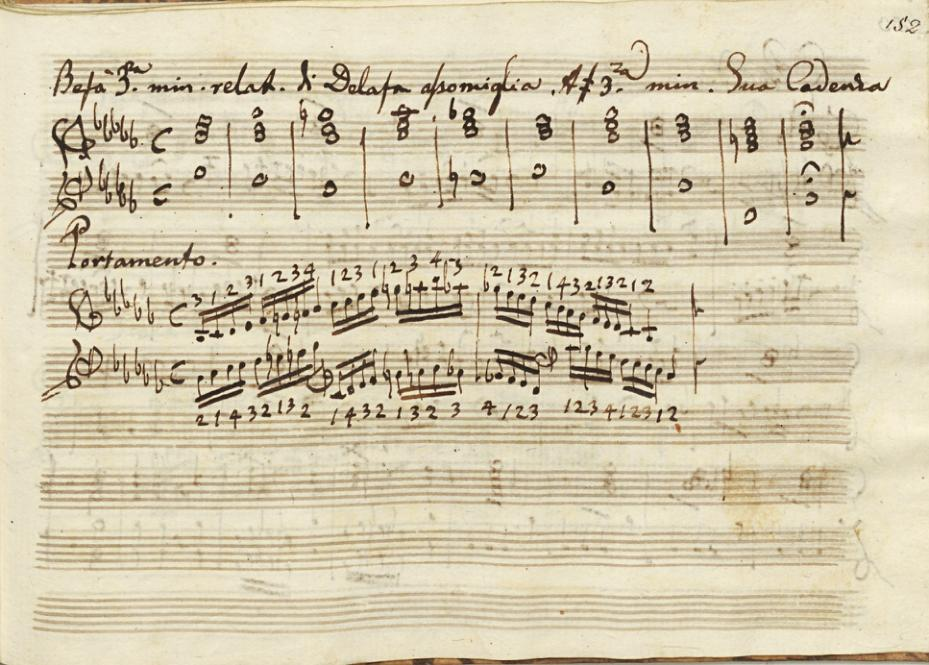 152
Befà 3ª. min. relat. di Delafa assomiglia. A# 3.za min. Sua Cadenza
Portamento.
3 1 2 3 1 2 3 4 1 2 3 1 2 3 4 3 2 1 3 2 1 4 3 2 1 3 2 1 2
2 1 4 3 2 1 3 2 1 4 3 2 1 3 2 3 4 1 2 3 1 2 3 4 1 2 3 1 2